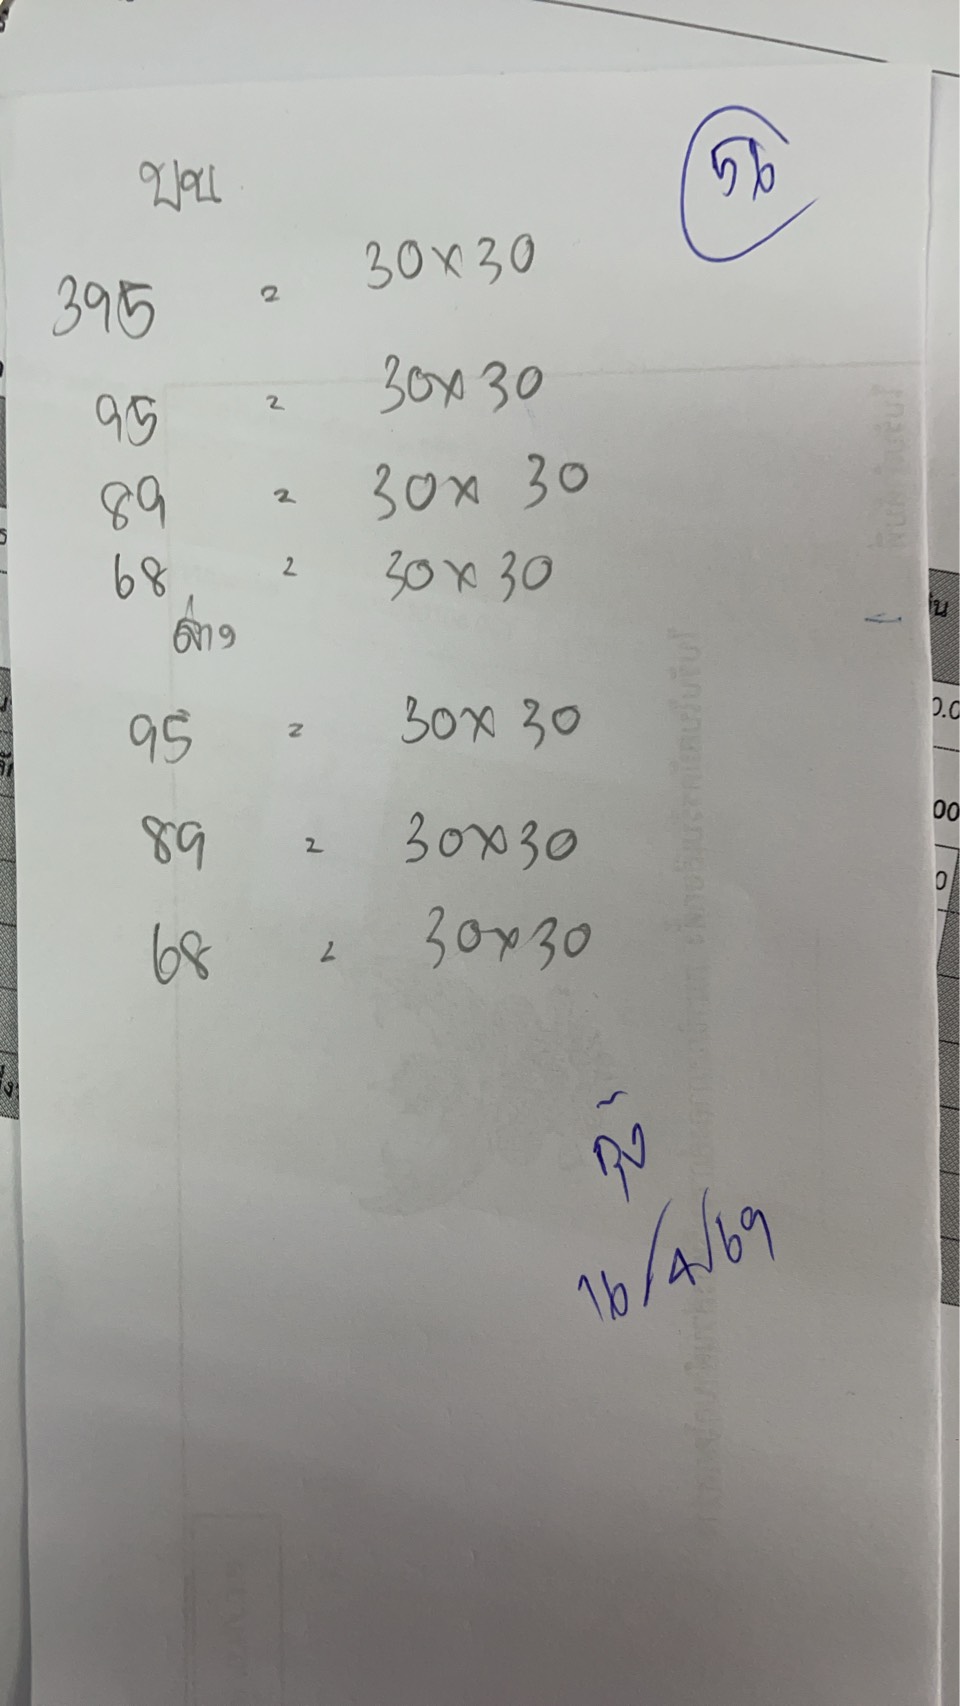 56
บน
395 = 30x30
95 = 30x30
89 = 30x 30
68 = 30x30
ล่าง
95 = 30x 30
89 = 30x30
68 = 30x30
16/4/69